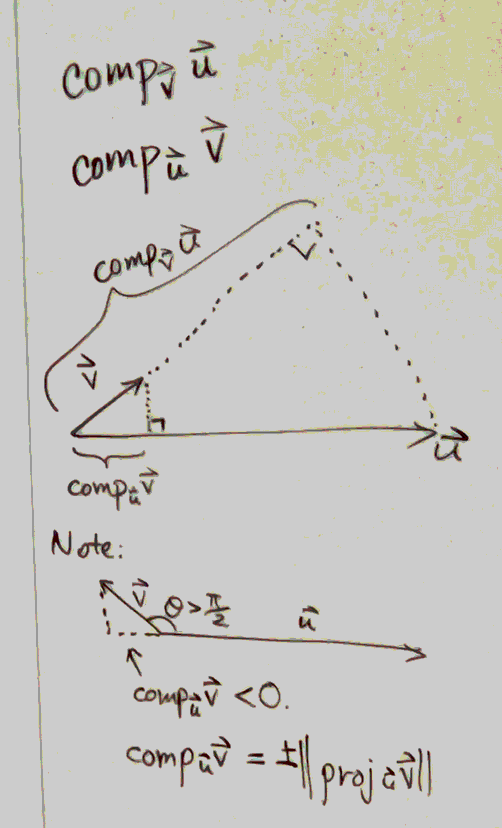 comp_v⃗ u⃗
comp_u⃗ v⃗
comp_v⃗ u⃗
v⃗
u⃗
comp_u⃗ v⃗
Note:
v⃗ θ > π/2 u⃗
comp_u⃗ v⃗ < 0.
comp_u⃗ v⃗ = ±‖proj_u⃗ v⃗‖